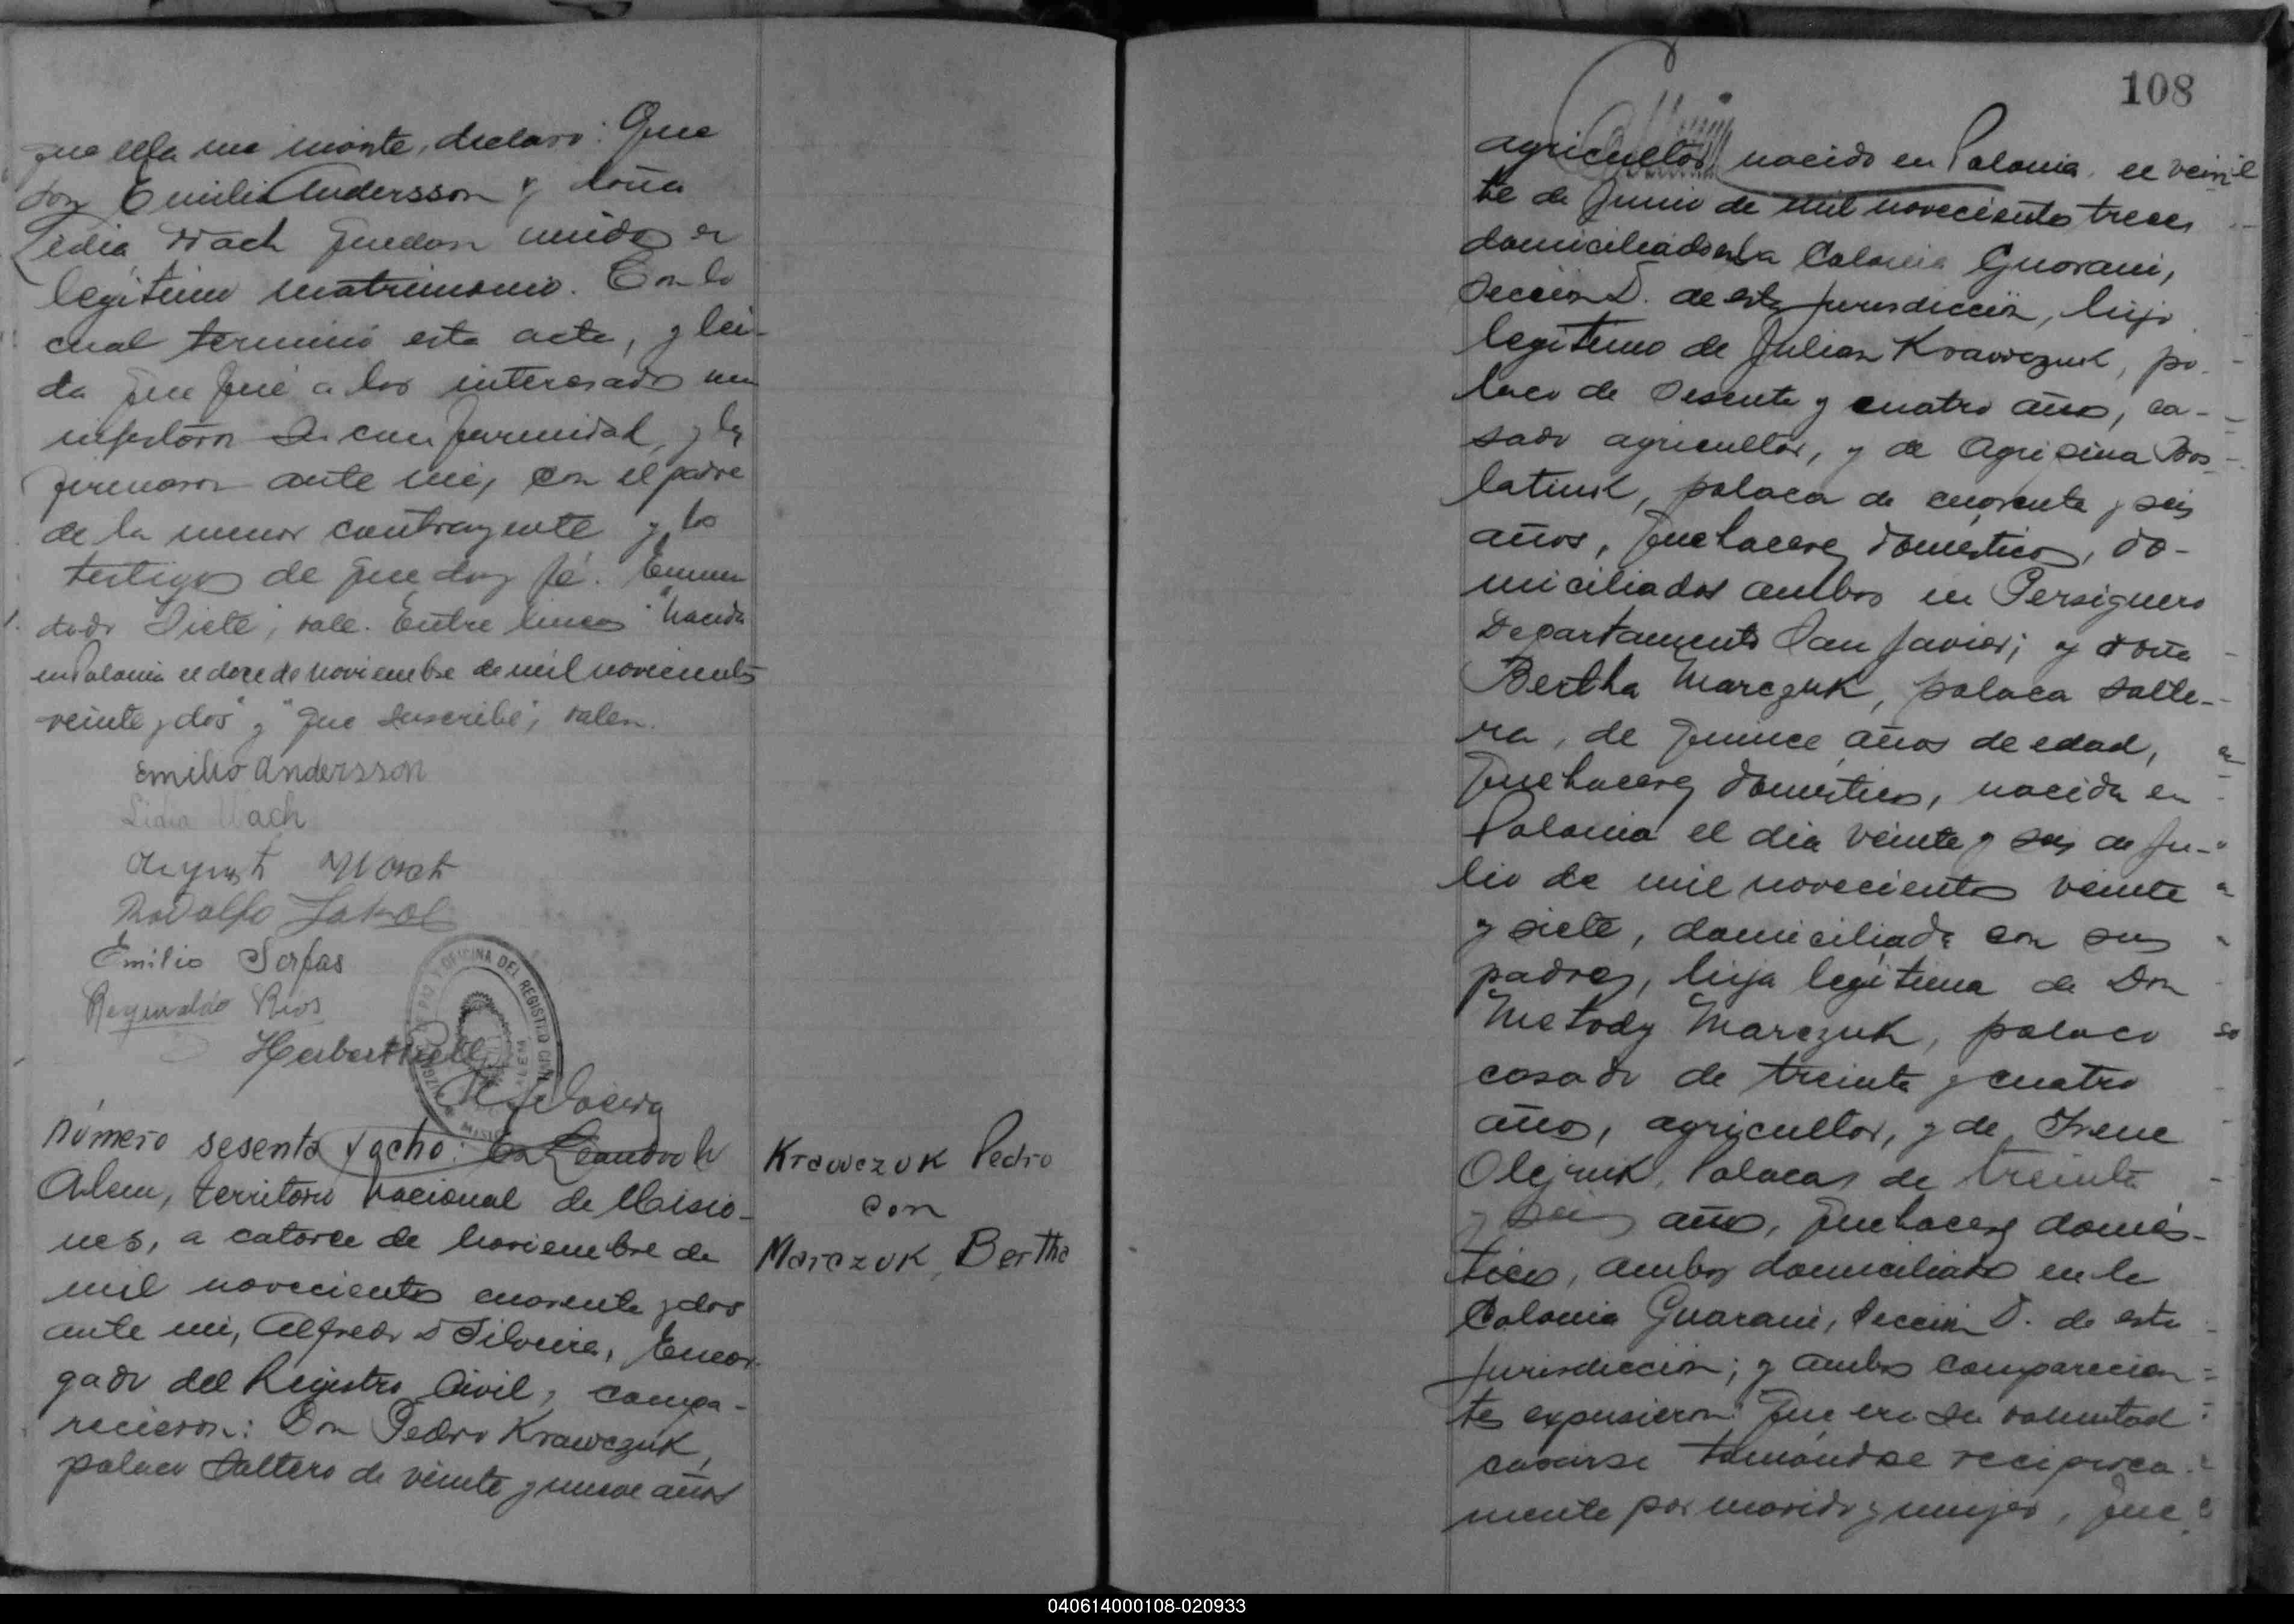 que ella me inviste, declaro: Que
don Emilio Andersson y doña
Lidia Wach quedan unidos en
legítimo matrimonio. Con lo
cual terminó esta acta, y leí-
da que fué a los interesados ma
nifestaron su conformidad, y la
firmaron ante mi, con el padre
de la menor contrayente y los
testigos de que doy fé. Enmen
dado "Siete", vale. Entre lineas "Nacida
en Polonia el doce de noviembre de mil novecientos
veinte y dos" y "que suscribe", valen.
Emilio Andersson
Lidia Wach
Rodolfo
Emilio Serfas
Reynaldo Rios
OFICINA DEL REGISTRO CIVIL
Número sesenta y ocho. En Leandro N
Alem, territorio Nacional de Misio-
nes, a catorce de Noviembre de
mil novecientos cuarenta y dos
ante mi, Alfredo D Silveira, Encar-
gado del Registro Civil, compa-
recieron: Don Pedro Krawczuk,
polaco soltero de veinte y nueve años
Krawczuk Pedro
con
Marczuk, Bertha
108
agricultor, nacido en Polonia, el vein
te de Junio de mil novecientos trece,
domiciliado en la Colonia Guarani,
Sección D. de esta jurisdicción, hijo
legítimo de Julian Krawczuk, po-
laco de sesenta y cuatro años, ca-
sado agricultor, y de Agripina Bos-
latiuk, polaca de cuarenta y seis
años, quehaceres domésticos, do-
miciliados ambos en Persiguero
Departamento San Javier; y doña
Bertha Marczuk, polaca solte-
ra, de quince años de edad,
quehaceres domésticos, nacida en
Polonia el dia veinte y seis de Ju-
lio de mil novecientos veinte
y siete, domiciliada con sus
padres, hija legítima de Don
Metody Marczuk, polaco
casado de treinta y cuatro
años, agricultor, y de Irene
Olejnik, Polaca, de treinta
y seis años, quehaceres domés-
ticos, ambos domiciliados en la
Colonia Guarani, Sección D. de esta
Jurisdicción; y ambos comparecien-
tes expusieron: Que era su voluntad
casarse tomándose reciproca-
mente por marido y mujer, que
040614000108-020933